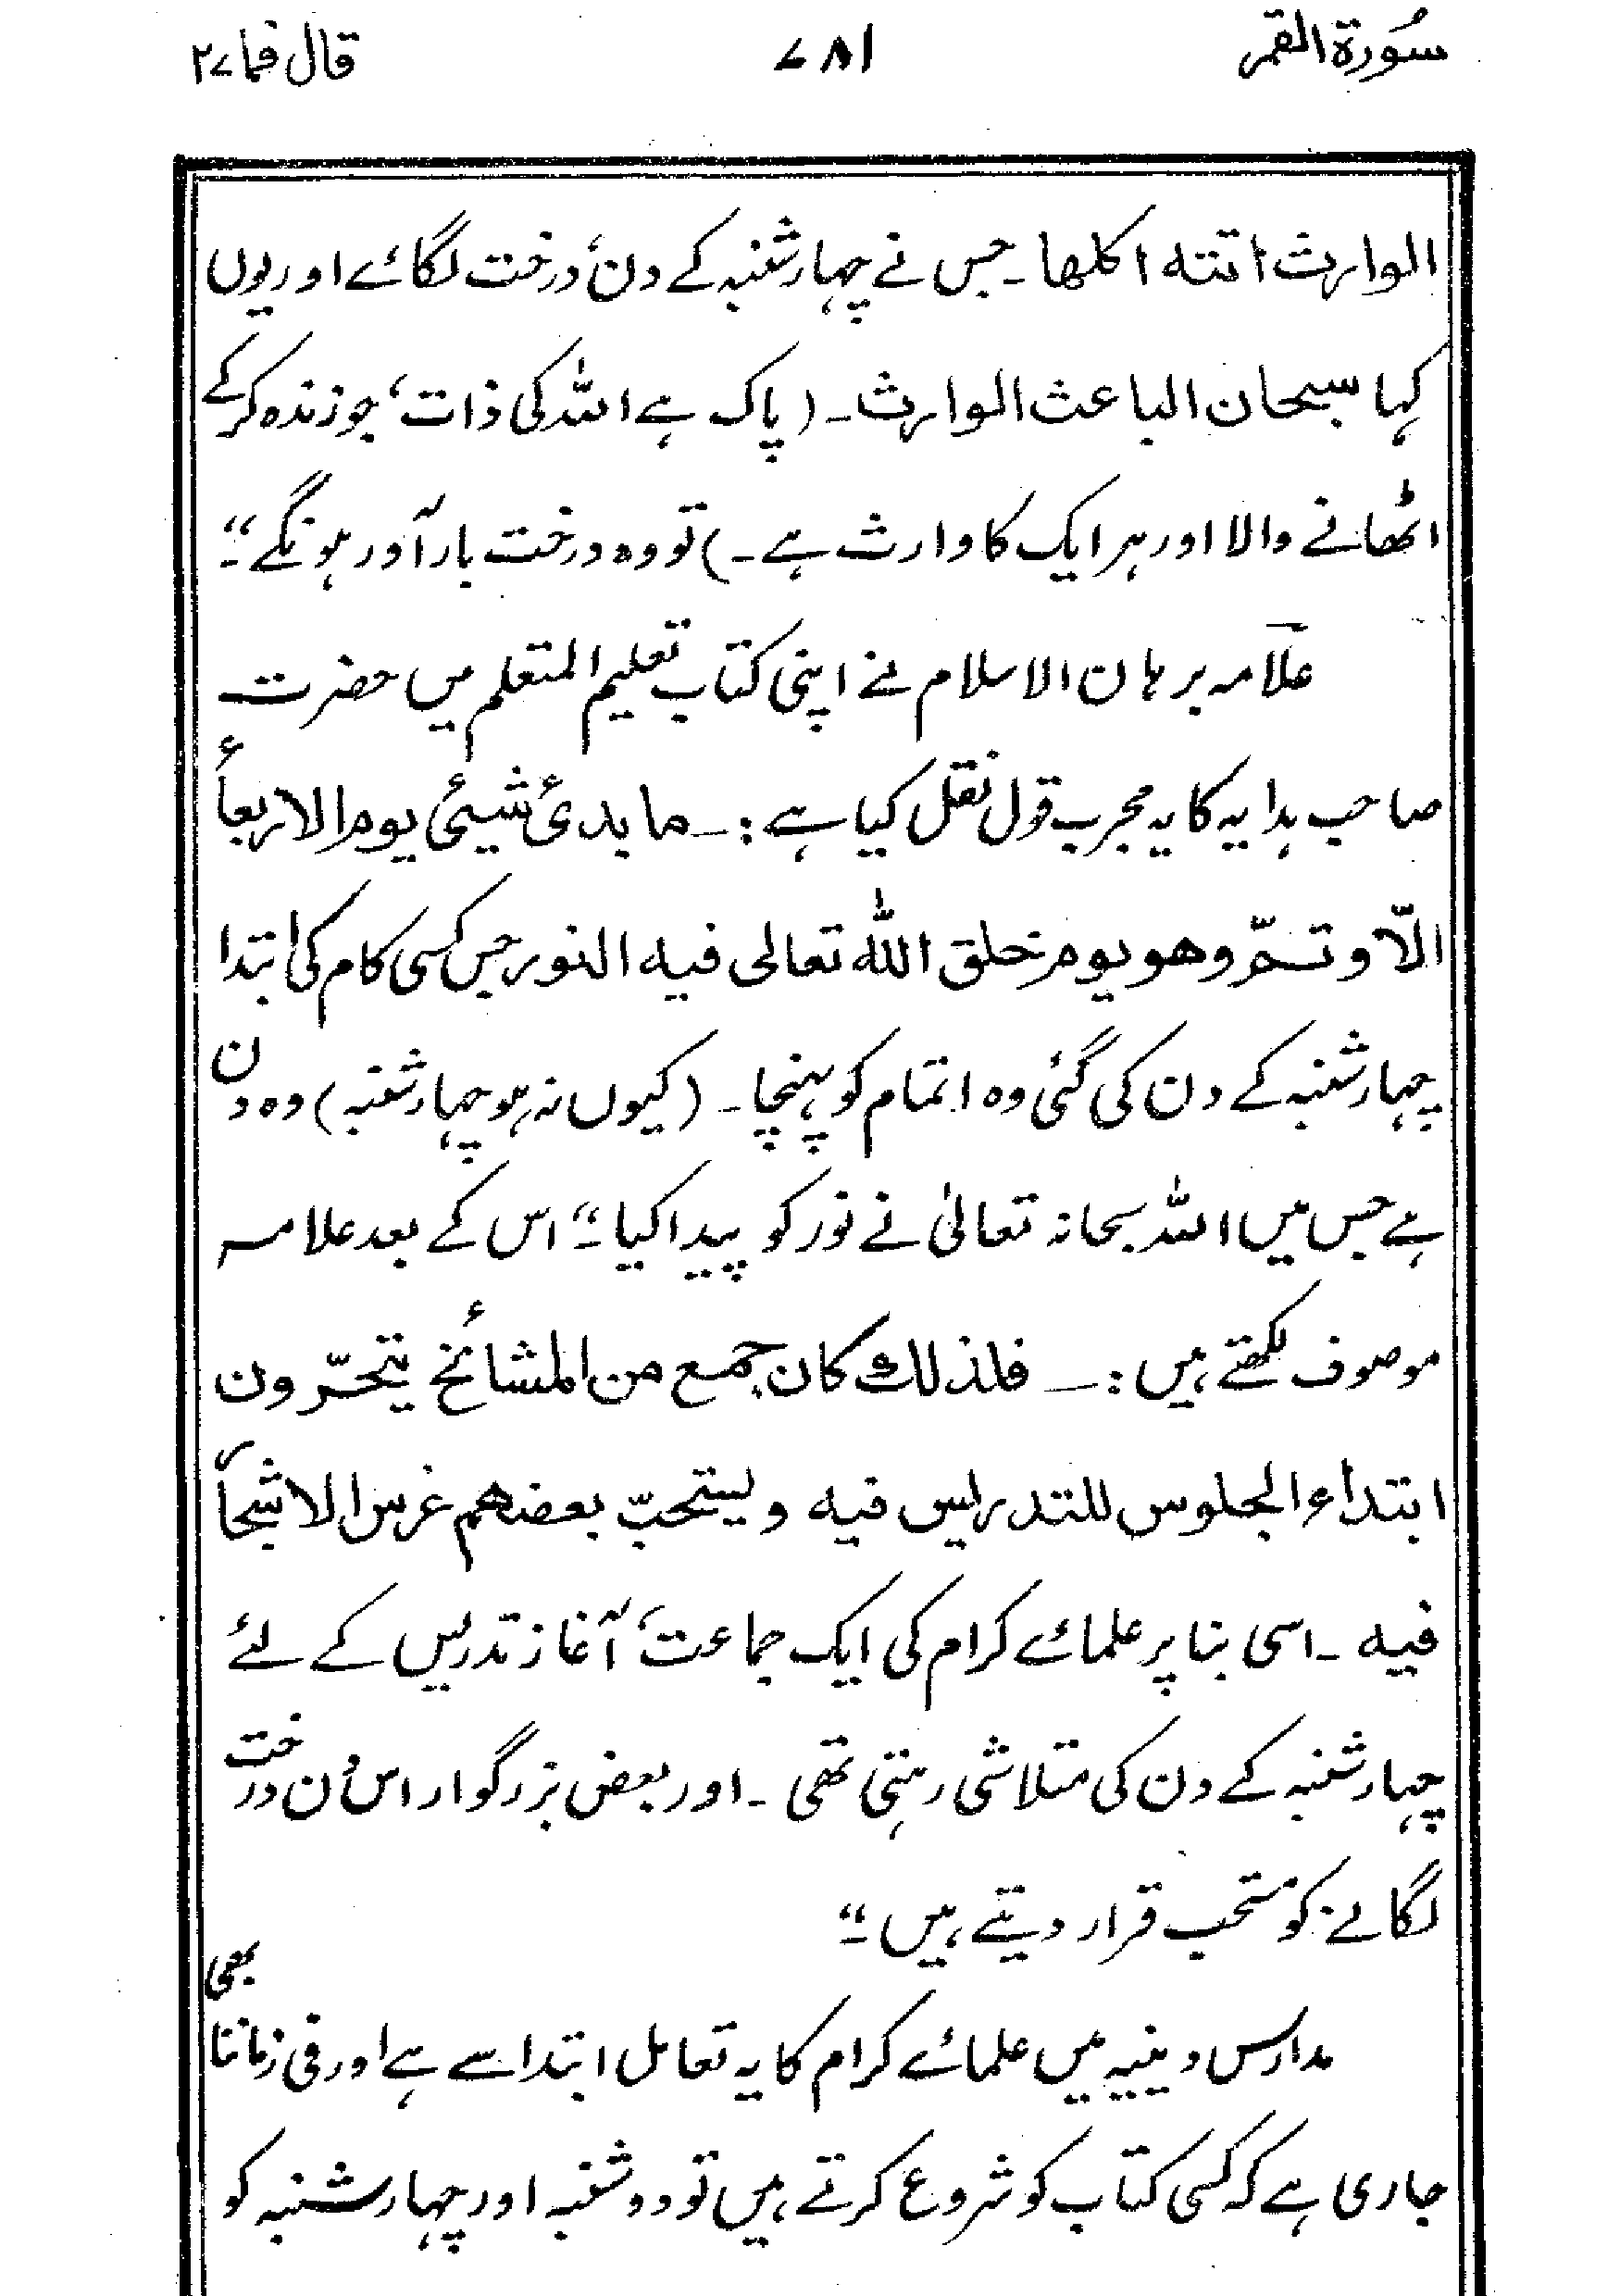 سُورۃ القمر ۷۸۱ قال فما ۲۷
الوارث اتته اکلها ۔ جس نے چہارشنبہ کے دن درخت لگائے اور یوں
کہا سبحان الباعث الوارث ۔ (پاک ہے اللہ کی ذات، جو زندہ کرکے
اٹھانے والا اور ہر ایک کا وارث ہے ۔) تو وہ درخت بارآور ہونگے"۔
علّامہ برہان الاسلام نے اپنی کتاب تعلیم المتعلم میں حضرت
صاحب ہدایہ کا یہ مجرب قول نقل کیا ہے :۔ ما بدیٔ شیئی یوم الاربعأء
الّا وتمّ وهو یوم خلق اللّٰه تعالی فیه النور جس کسی کام کی ابتدا
چہارشنبہ کے دن کی گئی وہ اتمام کو پہنچا ۔ (کیوں نہ ہو چہارشنبہ) وہ دن
ہے جس میں اللہ سبحانہ تعالیٰ نے نور کو پیدا کیا"۔ اس کے بعد علامہ
موصوف لکھتے ہیں :۔ فلذلك كان جمع من المشائخ یتحرّون
ابتداء الجلوس للتدریس فیه ویستحبّ بعضهم غرس الاشجار
فیه ۔ اسی بنا پر علمائے کرام کی ایک جماعت، آغاز تدریس کے لئے
چہارشنبہ کے دن کی متلاشی رہتی تھی ۔ اور بعض بزرگوار اس دن درخت
لگانے کو مستحب قرار دیتے ہیں"۔
مدارس دینیہ میں علمائے کرام کا یہ تعامل ابتدا سے ہے اور فی زماننا بھی
جاری ہے کہ کسی کتاب کو شروع کرتے ہیں تو دوشنبہ اور چہارشنبہ کو